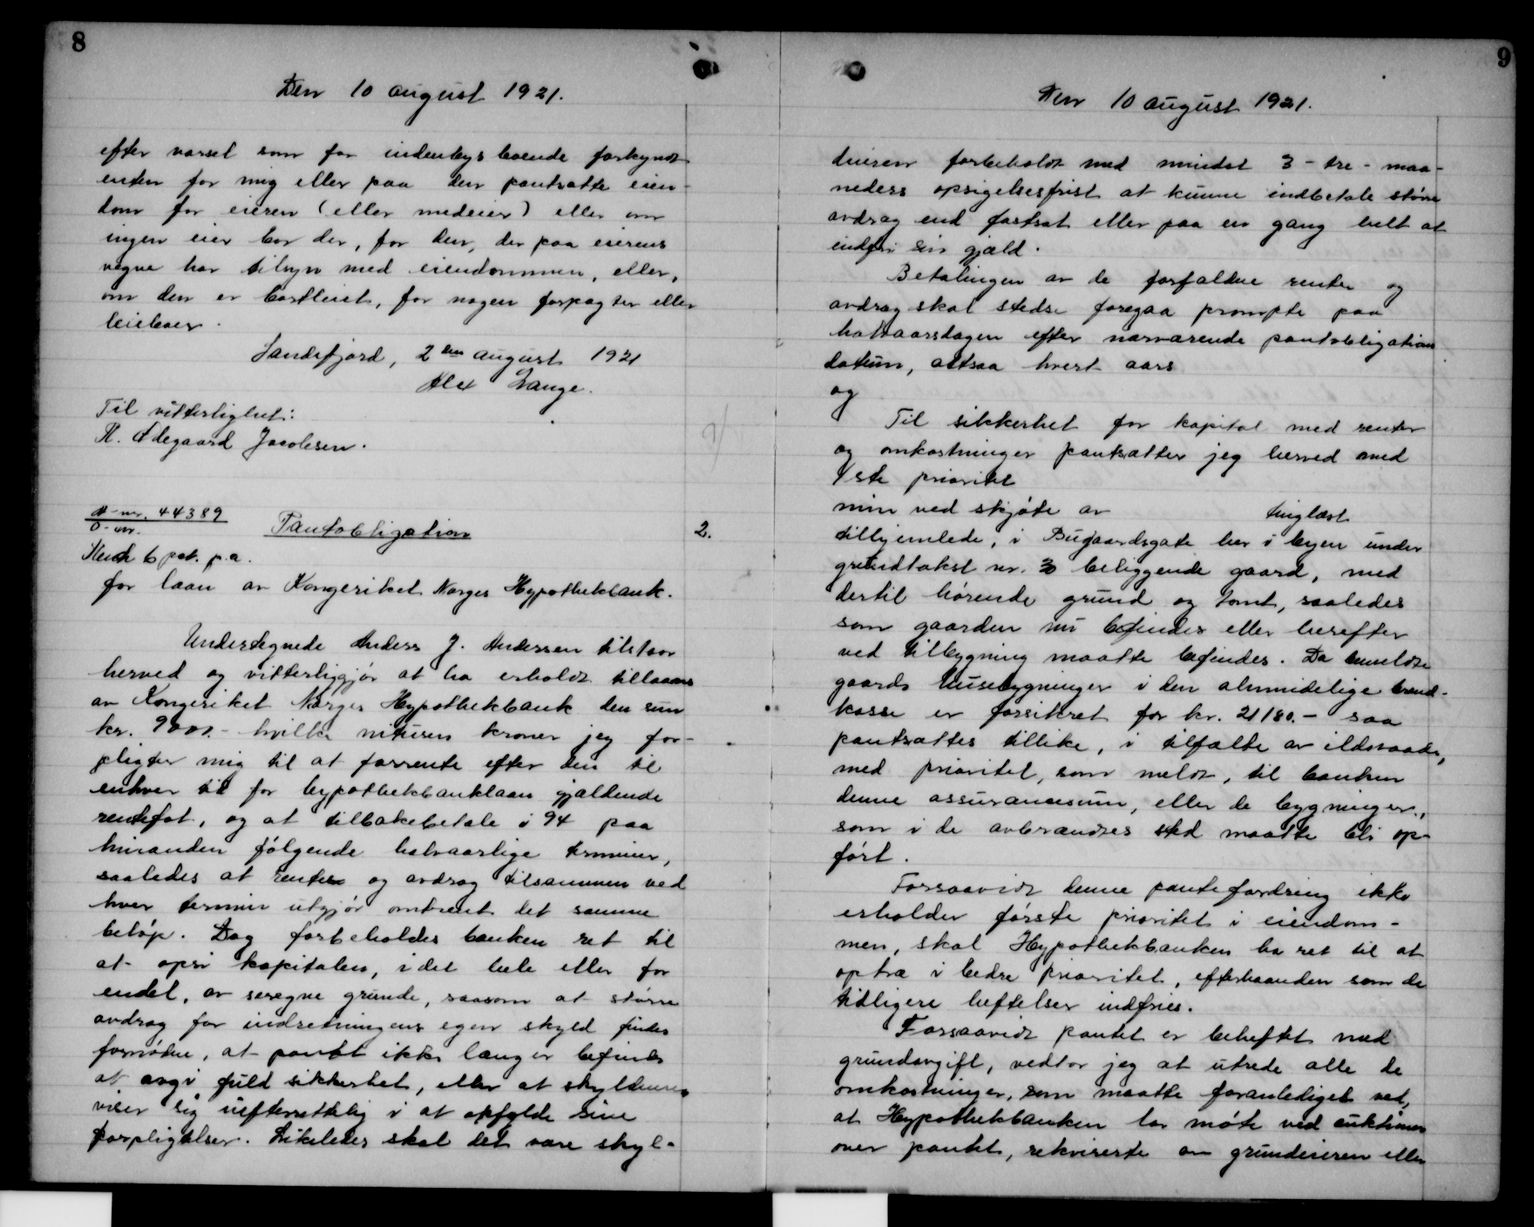 8
Den 10 august 1921.
efter varsel som for indenbys boende forkyndt
enten for mig eller paa den pantsatte eien-
dom for eieren (eller medeier) eller om
ingen eier bor der, for den, der paa eierens
vegne har tilsyn med eiendommen, eller,
om den er bortleiet, for nogen forpagter eller
leieboer.
Sandefjord, 2den august 1921
Alex Lange.
Til vitterlighet:
R. Ødegaard Jacobsen.
H-nr. 44389
O-nr.
Pantobligation
2.
Rente 6 pct. p.a.
for laan av Kongeriket Norges Hypothekbank.
Undertegnede Anders J. Andersen tilstaar
herved og vitterliggjør at ha erholdt tillaans
av Kongeriket Norges Hypothekbank den sum
kr. 9000.- hvilke nitusen kroner jeg for-
pligter mig til at forrente efter den til
enhver tid for hypothekbanklaan gjældende
rentefot, og at tilbakebetale i 94 paa
hinanden følgende halvaarlige terminer,
saaledes at renter og avdrag tilsammen ved
hver termin utgjør omtrent det samme
beløp. Dog forbeholdes banken ret til
at opsi kapitalen, i det hele eller for
endel, av seregne grunde, saasom at større
avdrag for indretningens egen skyld findes
fornødne, at pantet ikke længer befindes
at avgi fuld sikkerhet, eller at skyldneren
viser sig uefterrettelig i at opfylde sine
forpligtelser. Likeledes skal det være skyl-
9
Den 10 august 1921.
dneren forbeholdt med mindst 3 - tre - maa-
neders opsigelsesfrist at kunne indbetale større
avdrag end fastsat eller paa en gang helt at
indfri sin gjæld.
Betalingen av de forfaldne renter og
avdrag skal stedse foregaa prompte paa
halvaarsdagen efter nærværende pantobligations
datum, altsaa hvert aars
og
Til sikkerhet for kapital med renter
og omkostninger pantsætter jeg herved med
1ste prioritet
min ved skjøte av tinglæst
tilhjemlede, i Bugaardsgate her i byen under
grundtakst nr. 30 beliggende gaard, med
dertil hørende grund og tomt, saaledes
som gaarden nu befindes eller herefter
ved tilbygning maatte befindes. Da bemeldte
gaards husebygninger i den almindelige brand-
kasse er forsikret for kr. 21180.- saa
pantsættes tillike, i tilfælde av ildsvaade,
med prioritet, som meldt, til banken
denne assurancesum, eller de bygninger,
som i de avbrændtes sted maatte bli op-
ført.
Forsaavidt denne pantefordring ikke
erholder første prioritet i eiendom-
men, skal Hypothekbanken ha ret til at
optræ i bedre prioritet, efterhaanden som de
tidligere heftelser indfries.
Forsaavidt pantet er beheftet med
grundavgift, vedtar jeg at utrede alle de
omkostninger, som maatte foranlediget ved,
at Hypothekbanken lar møte ved auktioner
over pantet, rekvirerte av grundeieren eller